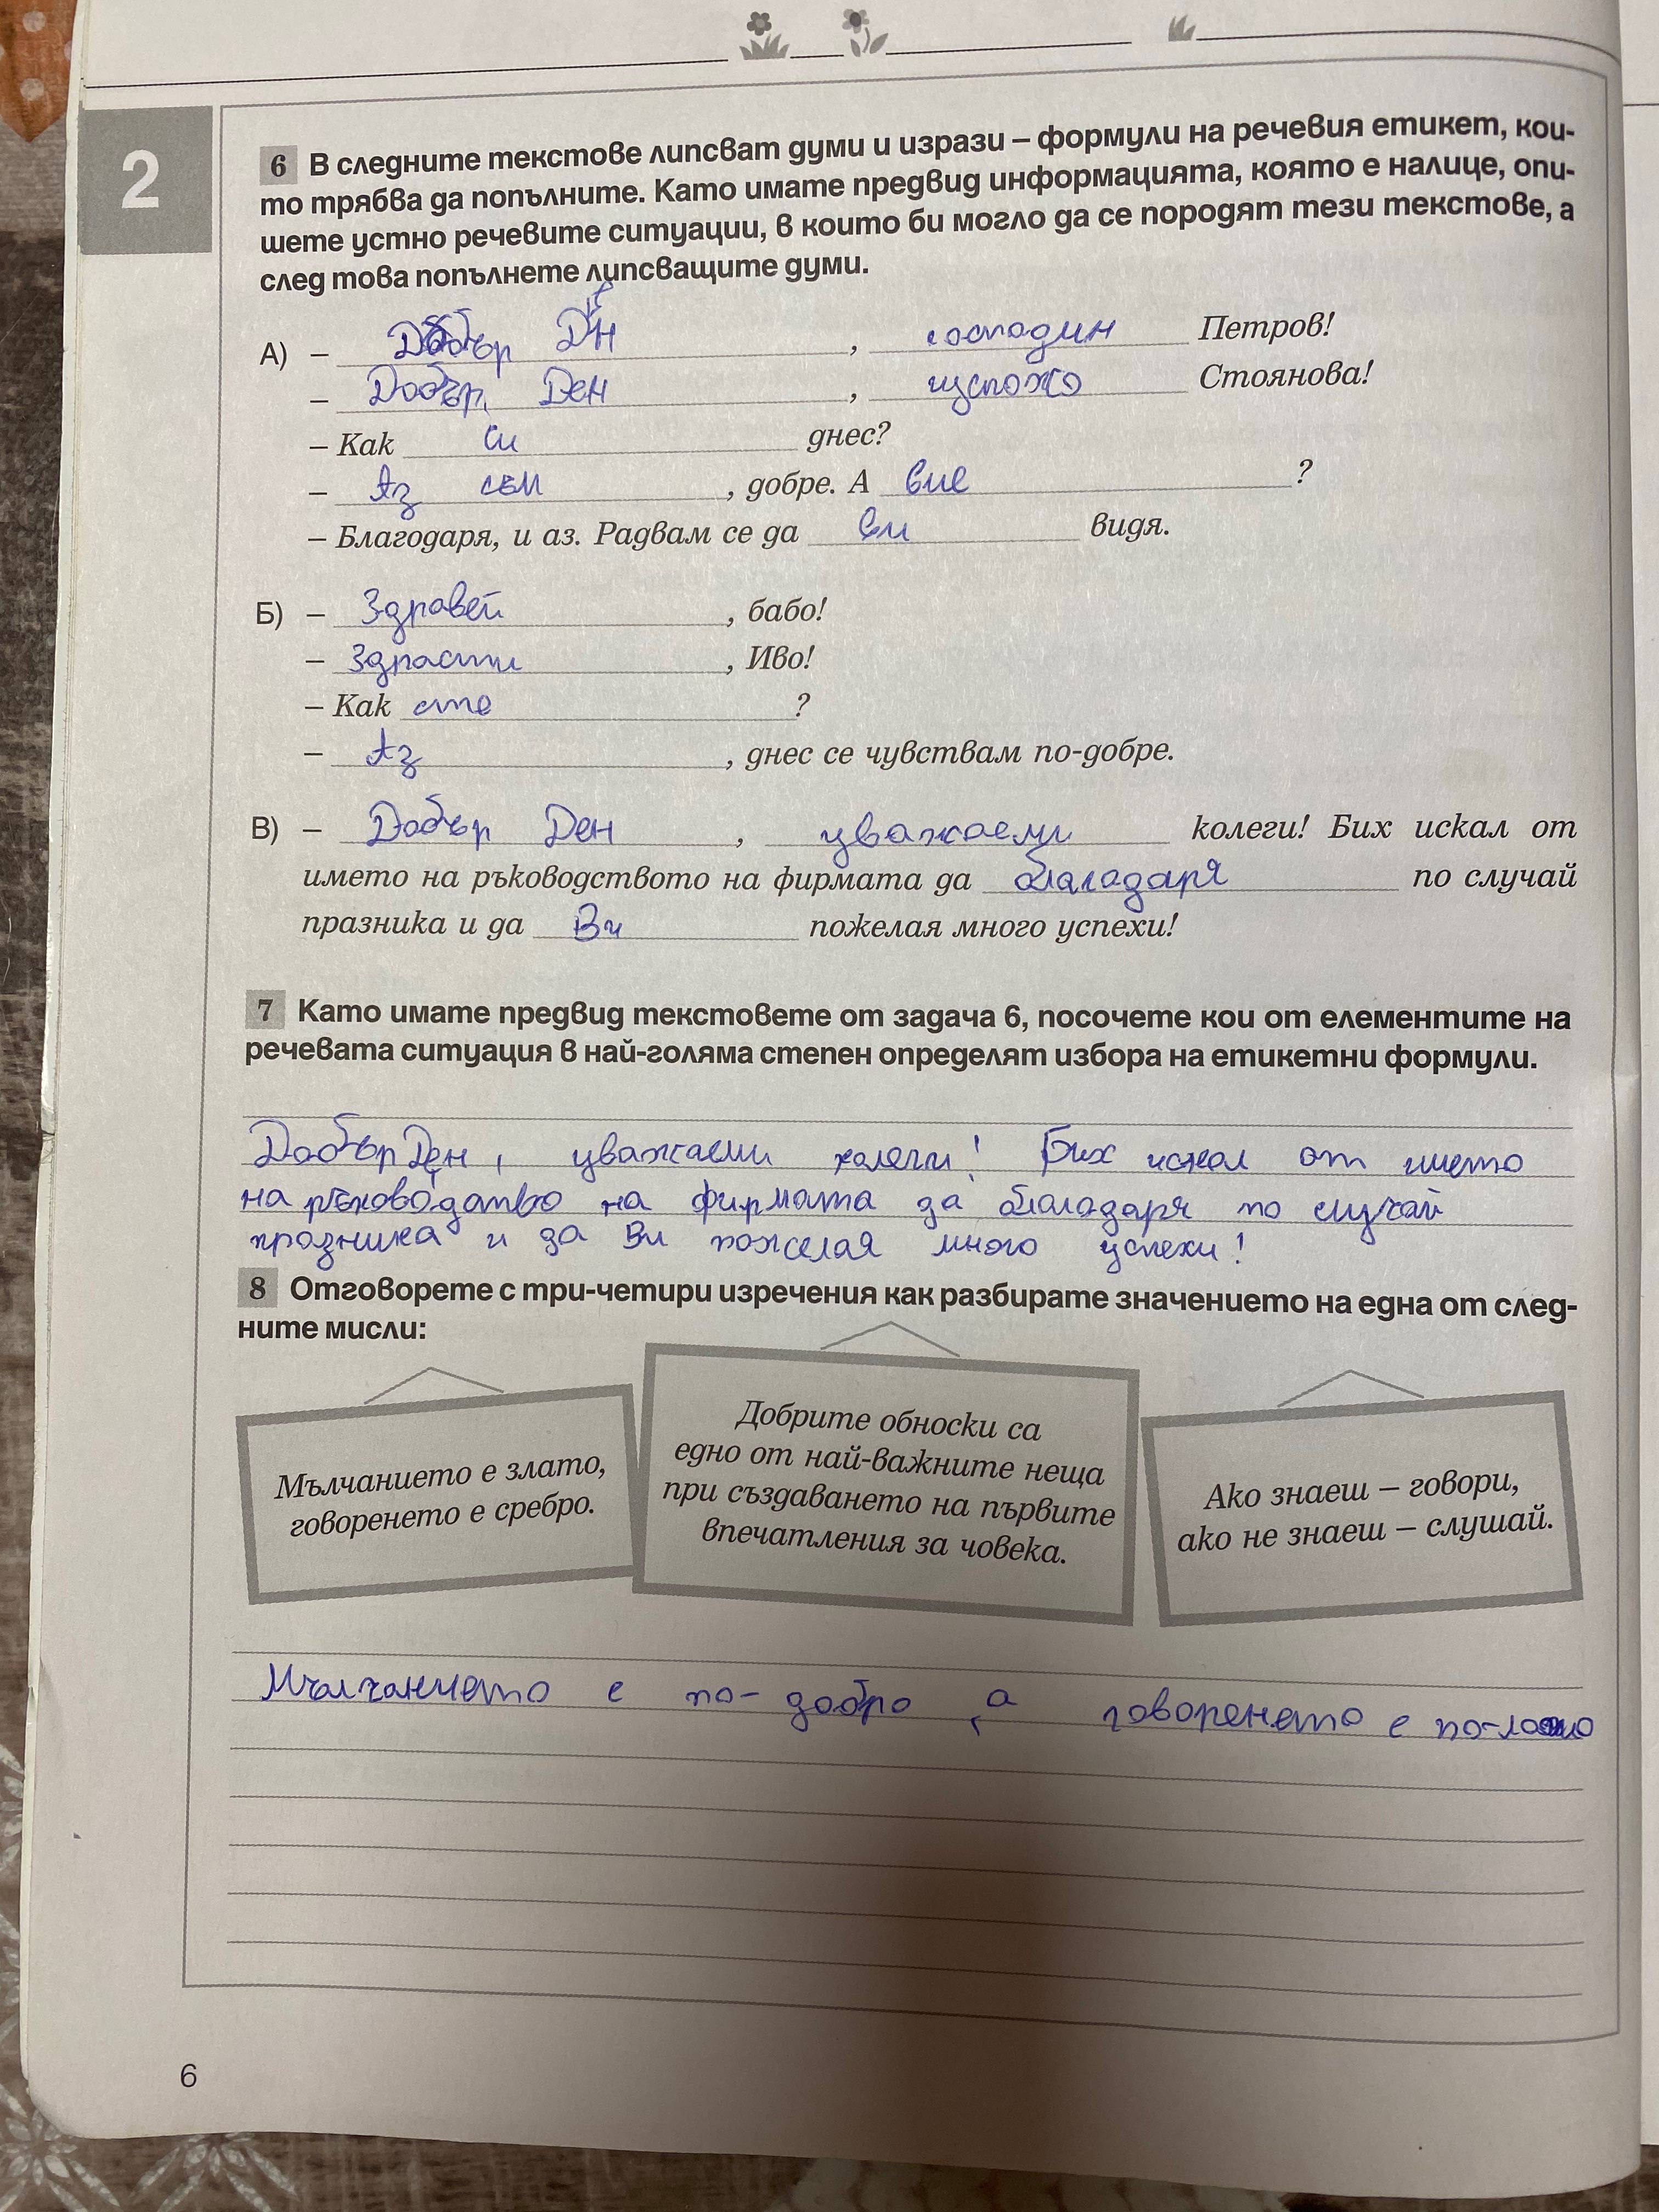 2
6 В следните текстове липсват думи и изрази – формули на речевия етикет, кои-
то трябва да попълните. Като имате предвид информацията, която е налице, опи-
шете устно речевите ситуации, в които би могло да се породят тези текстове, а
след това попълнете липсващите думи.
А) – Добър Ден, господин Петров!
– Добър Ден, гуспожо Стоянова!
– Как си днес?
– Аз съм, добре. А вие ?
– Благодаря, и аз. Радвам се да ви видя.
Б) – Здравей, бабо!
– Здрасти, Иво!
– Как сте ?
– Аз, днес се чувствам по-добре.
В) – Добър Ден, уважаеми колеги! Бих искал от
името на ръководството на фирмата да благадаря по случай
празника и да Ви пожелая много успехи!
7 Като имате предвид текстовете от задача 6, посочете кои от елементите на
речевата ситуация в най-голяма степен определят избора на етикетни формули.
Добър Ден, уважаеми колеги! Бих искал от името
на ръководство на фирмата да благадаря по случай
празника и да Ви пожелая много успехи!
8 Отговорете с три-четири изречения как разбирате значението на една от след-
ните мисли:
Мълчанието е злато,
говоренето е сребро.
Добрите обноски са
едно от най-важните неща
при създаването на първите
впечатления за човека.
Ако знаеш – говори,
ако не знаеш – слушай.
Мълчанието е по-добро, а говоренето е
6